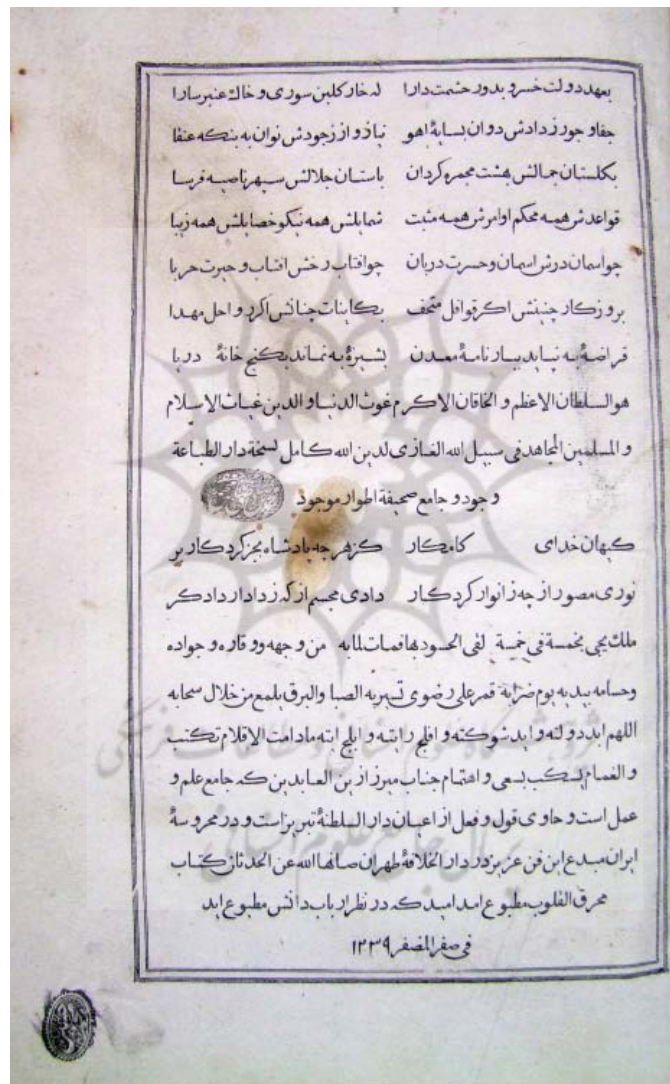 بعهد دولت خسرو بدور حشمت دارا نه خار کلبن سوری و خاک عنبر سارا
جفاو جور زدادش دوان بسایهٔ اهو نیاز و از زجودش نوان به بنکه عنقا
بکلستان جمالش بهشت مجمره کردان باستان جلالش سپهر ناصیه فرسا
قواعدش همه محکم اوامرش همه مثبت شمایلش همه نیکو خصایلش همه زیبا
چواسمان درش اسمان و حسرت دربان چوافتاب رخش افتاب و حیرت حربا
بروزکار چنینش اکر قوافل متحف بکاینات چنانش اکر رواحل مهدا
قراضهٔ به نیاید ببار نامهٔ معدن پشیزهٔ به نماند بکنج خانهٔ دریا
هوالسلطان الاعظم و الخاقان الاکرم غوث الدنیا و الدین غیاث الاسلام
و المسلمین المجاهد فی سبیل الله الغازی لدین الله کامل نسخة دار الطباعة
وجود و جامع صحیفة اطوار موجود
کیهان خدای کامکار کزهرچه پادشاه بجز کردکار بر
نوری مصور ازچه زانوار کردکار دادی مجسم ازکه زدادار دادکر
ملک یجی بخمسة فی خمسة لقی الحسود بها فمات لمابه من وجهه و وقاره و جواده
وحسامه بیدیه یوم ضرابه قمر علی رضوی تسیر به الصبا والبرق یلمع من خلال سحابه
اللهم اید دولته و اید شوکته و افلج رایته و ابلج ایته مادامت الاقلام تکتب
و الغمام یسکب بسعی و اهتمام جناب میرزا زین العابدین که جامع علم و
عمل است و حاوی قول و فعل از اعیان دار السلطنهٔ تبریز است و در محروسهٔ
ایران مبدع این فن عزیز در دار الخلافهٔ طهران صانها الله عن الحدثان کتاب
محرق القلوب مطبوع امد امید که در نظر ارباب دانش مطبوع اید
فی صفر المضفر ۱۲۳۹
پژوهشگاه علوم انسانی و مطالعات فرهنگی
پرتال جامع علوم انسانی